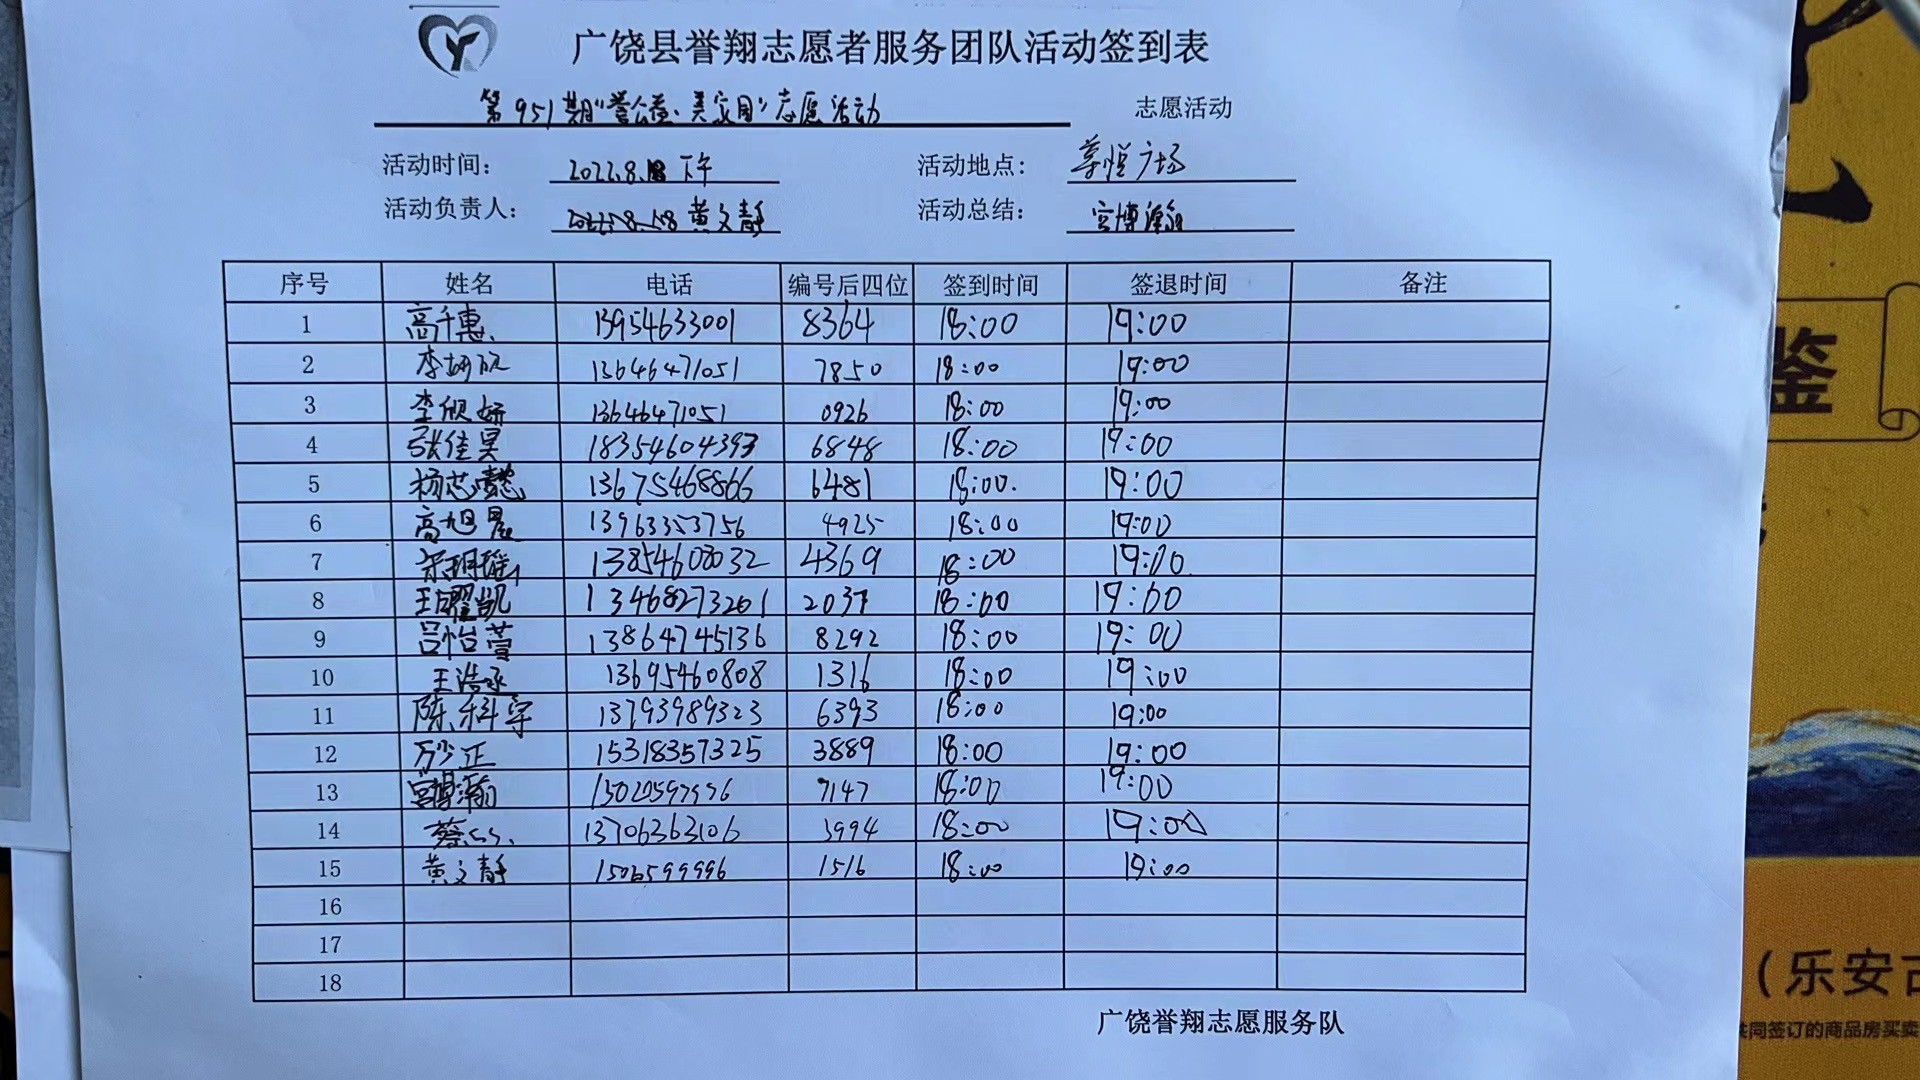 广饶县誉翔志愿者服务团队活动签到表
第951期“誉公益、美家园”志愿活动 志愿活动
活动时间: 2022.8.18 下午 活动地点: 尊悦广场
活动负责人: 黄文静 活动总结: 宫博瀚
序号 姓名 电话 编号后四位 签到时间 签退时间 备注
1 高千惠 13954633001 8364 18:00 19:00
2 李妍欣 13646471051 7850 18:00 19:00
3 李欣妍 13646471051 0926 18:00 19:00
4 张佳昊 18354604393 6848 18:00 19:00
5 杨芯懿 13675468866 6481 18:00. 19:00
6 高旭晨 13963353756 4925 18:00 19:00
7 宋玥瑶 13854608032 4369 18:00 19:00
8 王耀凯 13468273201 2037 18:00 19:00
9 吕怡萱 13864745136 8292 18:00 19:00
10 王浩丞 13695460808 1316 18:00 19:00
11 陈科宇 13793989323 6393 18:00 19:00
12 万少正 15318357325 3889 18:00 19:00
13 宫博瀚 7147 18:00 19:00
14 蔡 13706363106 3994 18:00 19:00
15 黄文静 1506599996 1516 18:00 19:00
16
17
18
广饶誉翔志愿服务队
鉴
(乐安古
共同签订的商品房买卖